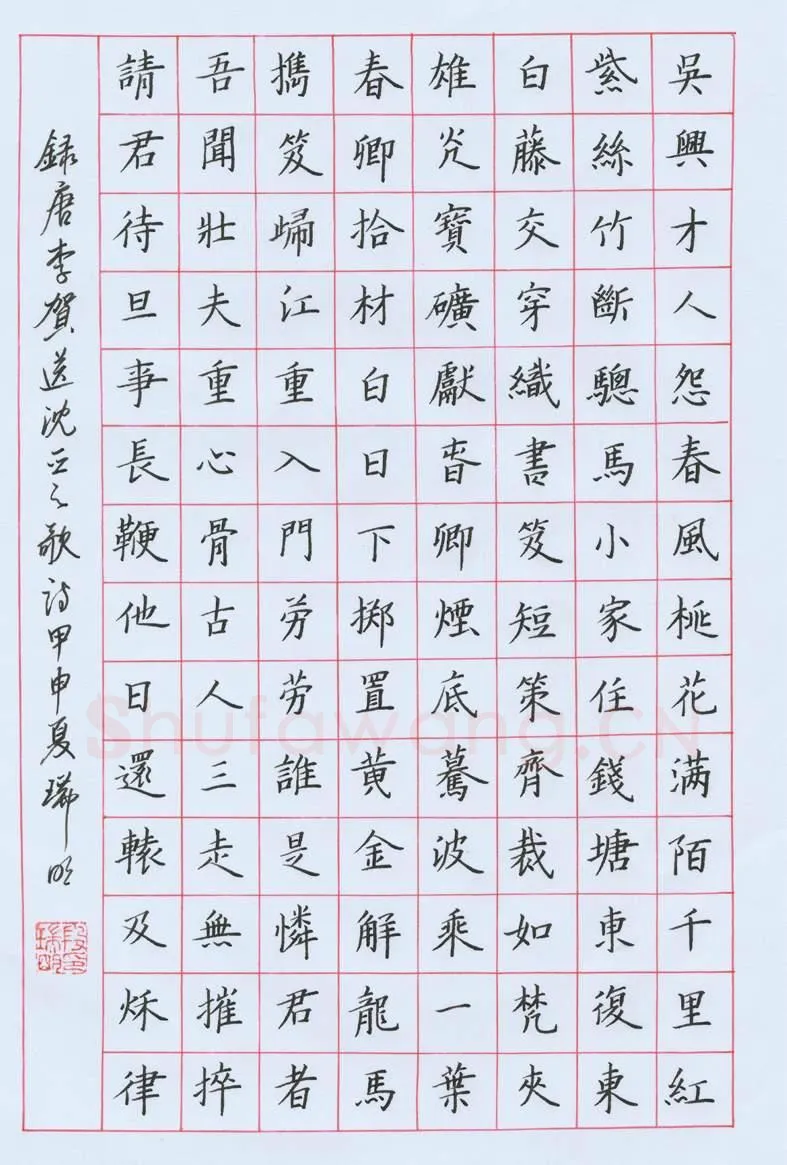 吳興才人怨春風桃花满陌千里紅
紫絲竹斷驄馬小家住錢塘東復東
白藤交穿織書笈短策齊裁如梵夾
雄光寶礦獻春卿煙底驀波乘一葉
春卿拾材白日下掷置黄金解龍馬
擕笈歸江重入門劳劳誰是憐君者
吾聞壯夫重心骨古人三走無摧捽
請君待旦事長鞭他日還轅及秋律
録唐李賀送沈亚之歌诗甲申夏瑞明
段印瑞明
Shufawang.CN